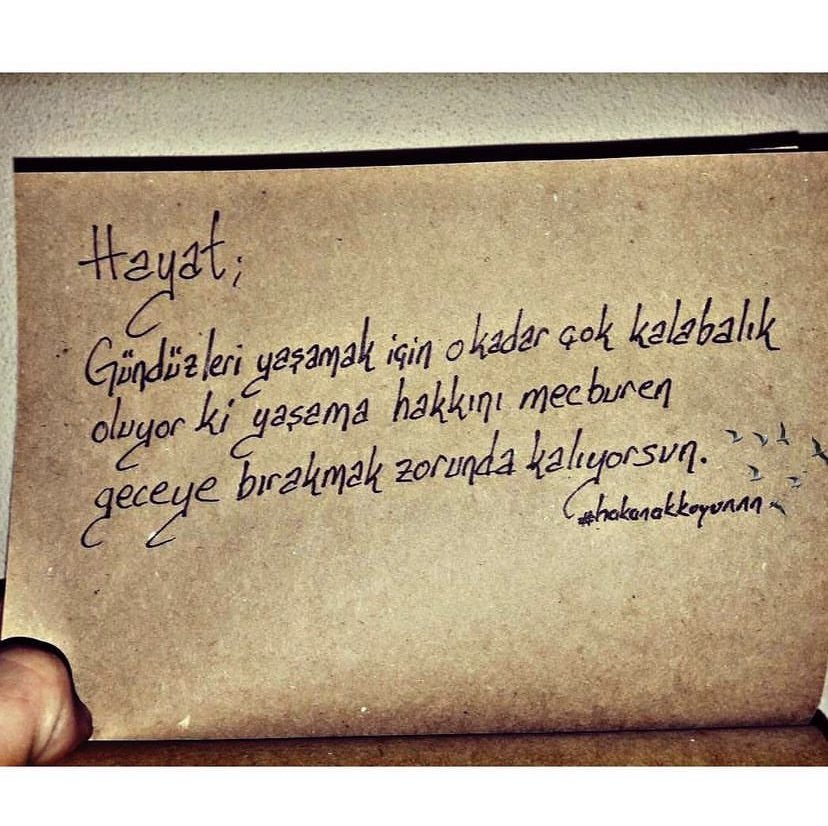 Hayat;
Gündüzleri yaşamak için o kadar çok kalabalık
oluyor ki yaşama hakkını mecburen
geceye bırakmak zorunda kalıyorsun.
#hakanakkoyunnn